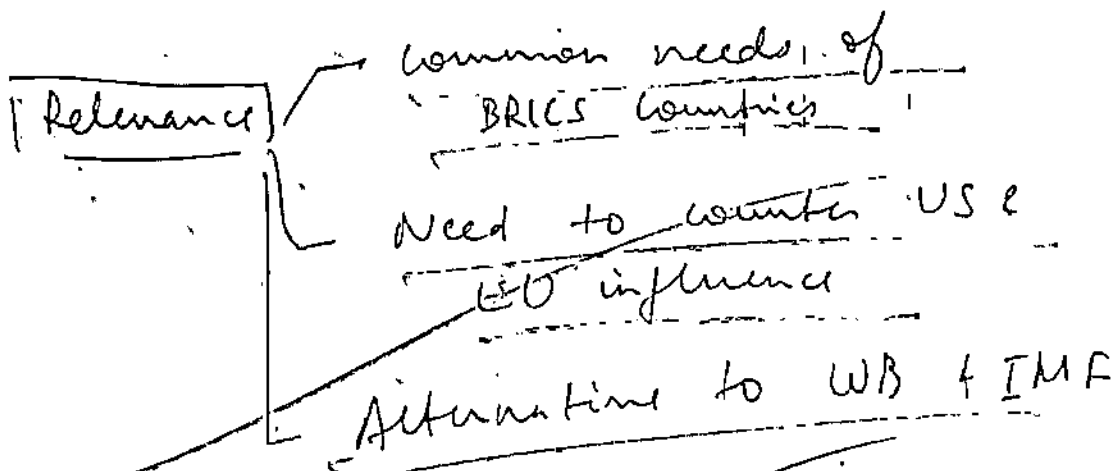 Relevance
common needs of
BRICS Countries
Need to counter US &
EU influence
Alternative to WB & IMF